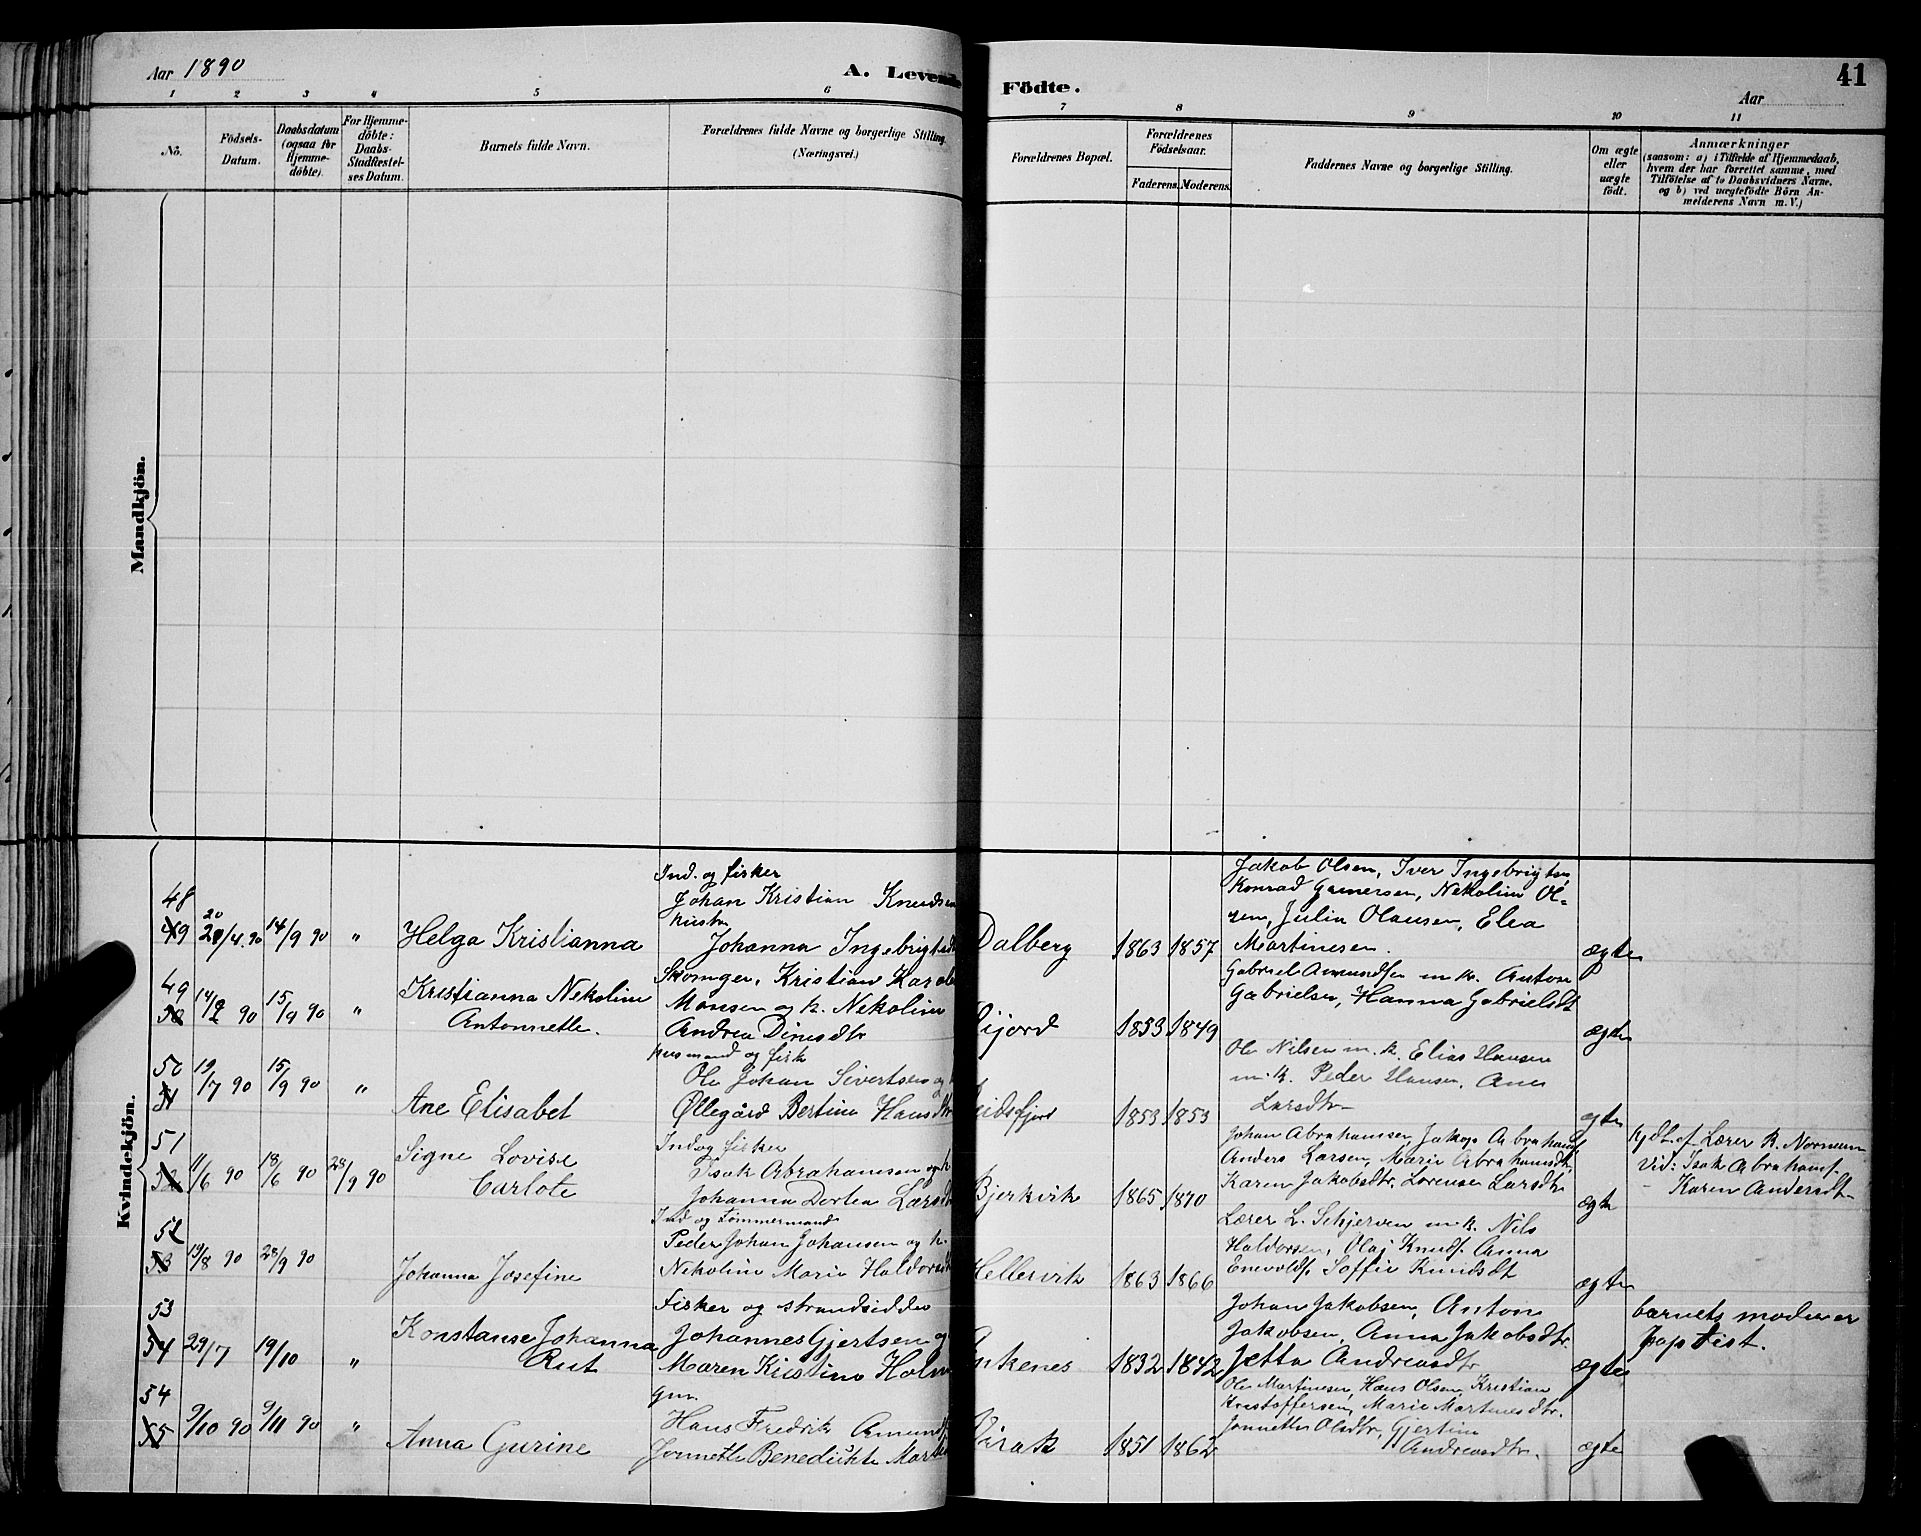 Aar 1890
A. Levende
Födte.
41
Aar
1 2 3 4 5 6 7 8 9 10 11
No.
Födsels-
Datum.
Daabsdatum
(ogsaa for
Hjemme-
döbte).
For Hjemme-
döbte:
Daabs-
Stadfæstel-
ses Datum.
Barnets fulde Navn.
Forældrenes fulde Navne og borgerlige Stilling.
(Næringsvei.)
Forældrenes Bopæl.
Forældrenes
Födselsaar.
Faderens. Moderens.
Faddernes Navne og borgerlige Stilling.
Om ægte
eller
uægte
födt.
Anmærkninger
(saasom: a) i Tilfælde af Hjemmedaab,
hvem der har forrettet samme, med
Tilföielse af to Daabsvidners Navne,
og b) ved uægtefödte Börn An-
melderens Navn m. V.)
Mandkjön.
Kvindekjön.
48
49 20/4 90 14/9 90 "
Helga Kristianna
Ind. og fisker
Johan Kristian Knudsen
hustr
Johanna Ingebrigtsd
Dalberg 1863 1857
Jakob Olsen, Iver Ingebrigtsen
Konrad Gunersen, Nekoline Ol-
sen, Julia Olausen, Elea
Martinesen.
ægte
49
50 14/2 90 15/9 90 "
Kristianna Nekoline
Antonnette.
Skomger. Kristian Karol
Monsen og h. Nekoline
Andrea Dinesdtr
1853 1849
Gabriel Amundsen m. h. Anton
Gabrielsen, Hanna Gabrielsdt
ægte
50
51 19/7 90 15/9 90 "
Ane Elisabet
husmand og fisk
Ole Johan Sivertsen og h
Øllegård Bertine Hansdtr
1853 1853
Ole Nilsen m. h. Elias Hansen
m. h. Peder Hansen, Ane
Larsdtr
ægte
51
52 11/6 90 18/6 90 28/9 90
Signe Lovise
Carlote
Ind og fisker
Isak Abrahamsen og h
Johanna Dortea Larsdt
Bjerkvik 1865 1870
Johan Abrahamsen, Jakop Abrahams
Anders Larsen, Marie Abrahamsdtr
Karen Jakobsdtr. Lorense Larsdtr
ægte
hjdt. af Lærer K. Normann
Vid: Isak Abrahams.
- Karen Andersdt
52
53 19/8 90 28/9 90
Johanna Josefine
Ind og Tømmermand
Peder Johan Johansen og h.
Nekoline Marie Haldorsd
Hellervik 1863 1866
Lærer L. Schjerven m. h. Nils
Haldorsen, Olaj Knuds. Anna
Enevolds. Soffie Knudsdt
ægte
53
54 29/7 19/10 "
Konstanse Johanna
Rut
Fisker og strandsidder
Johannes Gjertsen og
Maren Kristine Holm
Ankenes 1832 1842
Johan Jakobsen, Anton
Jakobsen, Anna Jakobsdtr.
Jetta Andreasdtr
ægte
barnets moder er
baptist.
54
55 9/10 90 9/11 90 "
Anna Gurine
gm.
Hans Fredrik Amunds
Jonnette Benedikte Mart
1851 1862
Ole Martinusen, Hans Olsen, Kristian
Kristoffersen, Marie Martinesdtr.
Jonnette Olsdtr, Gjertine
Andreasdtr.
ægte